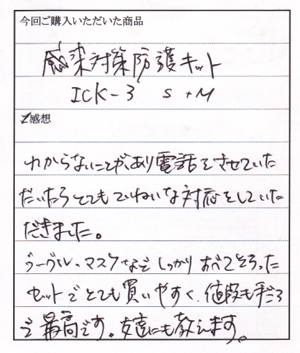 今回ご購入いただいた商品
感染対策防護キット
ICK-3 S+M
ご感想
わからないことがあり電話をさせていた
だいたらとてもていねいな対応をしていた
だきました。
ゴーグル、マスクなどしっかりすべてそろった
セットでとても買いやすく、値段も手ごろ
で最高です。友達にも教えます。